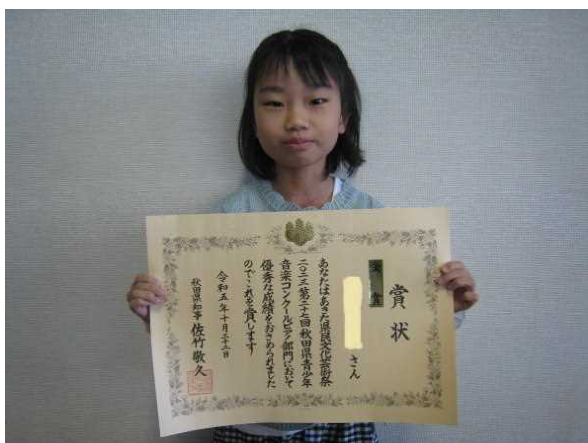 賞状
賞
さん
あなたはあきた県民文化芸術祭
二〇二三第二十七回秋田県青少年
音楽コンクールピアノ部門において
優秀な成績をおさめられました
のでこれを賞します
令和五年十月二十二日
秋田県知事 佐竹敬久